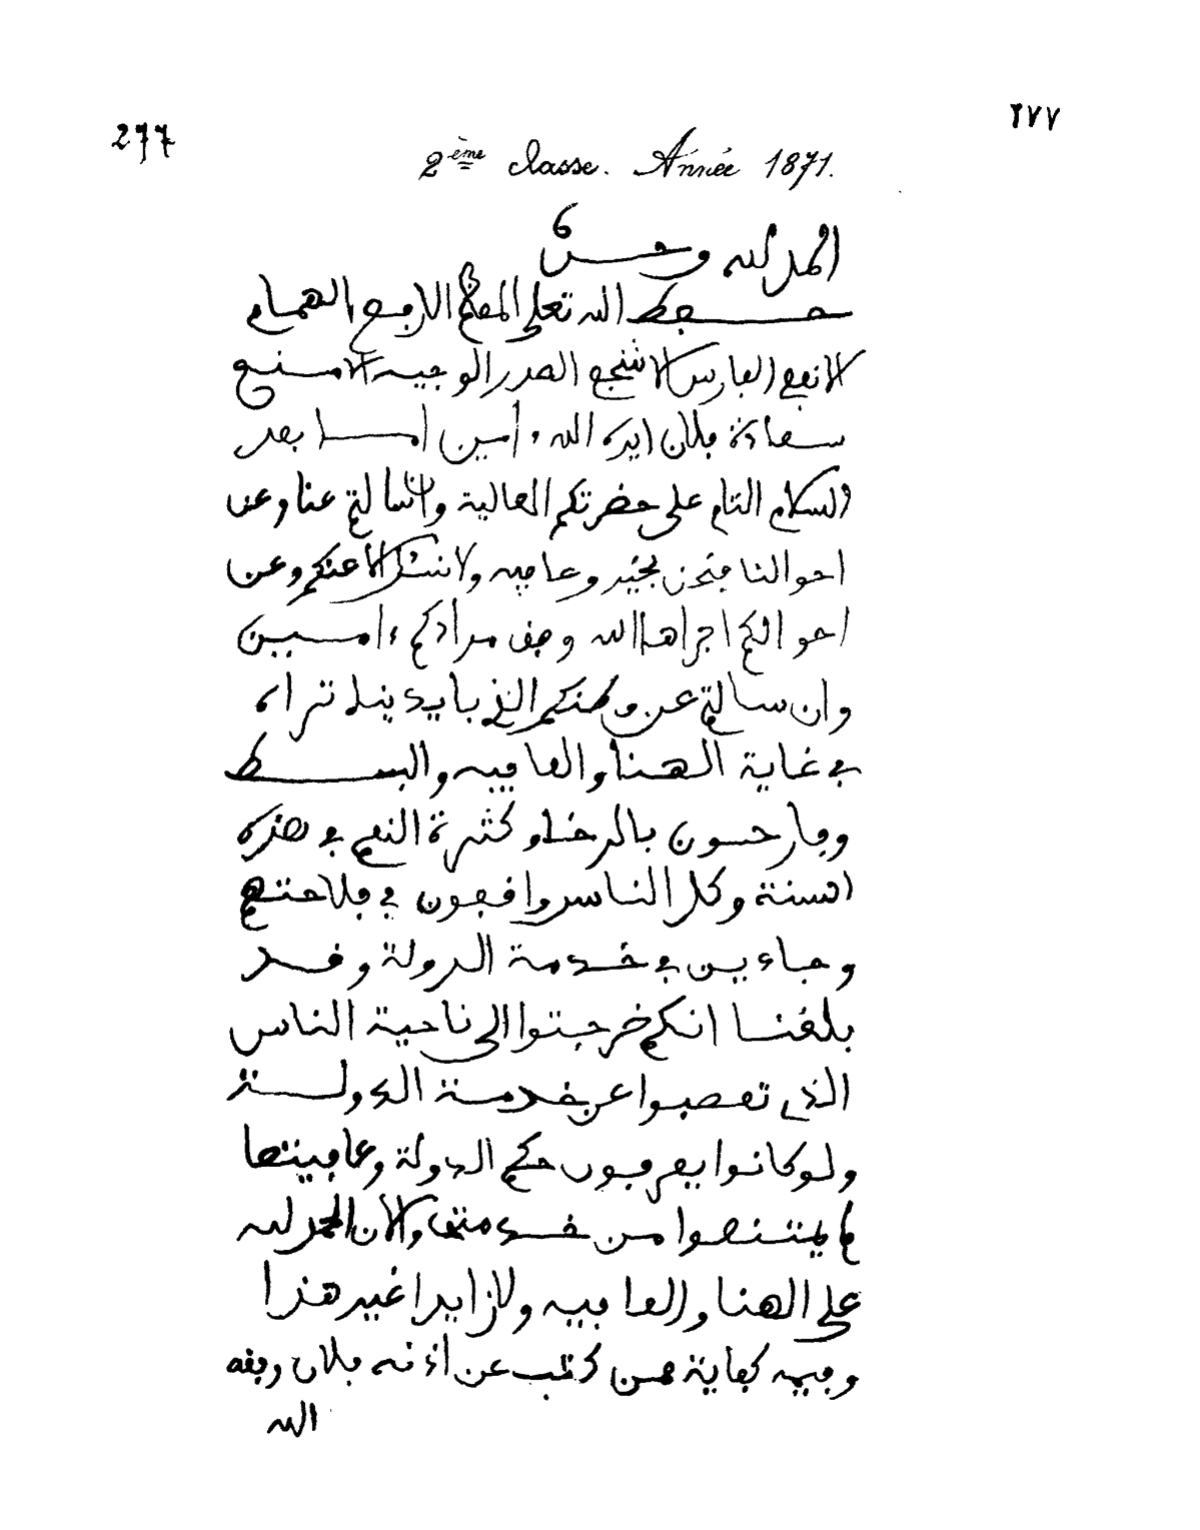 277
٢٧٧
2ème classe. Année 1871.
الحمد لله وحده
حفظ الله تعلى المقام الارفع الهمام
الانفع الفارس الاشجع الصدر الوجيه الامنع
سعادة فلان ايده الله ءامين اما بعد
السلام التام على حضرتكم العالية وان سالتم عنا وعن
احوالنا فنحن بخير وعافيه ولا نسئل الا عنكم وعن
احوالكم اجراها الله وفق مرادكم ءامين
وان سالتم عن وطنكم الذي بايدينا تراه
في غاية الهنا والعافيه والبسط
وفارحسون بالرخاء وكثرة النعم في هذه
السنة وكل الناس واقفون في فلاحتهم
وجاءين في خدمة الدولة وقد
بلغنا انكم خرجتوا الى ناحية الناس
الذي تعصبوا عن خدمة الدولة
ولو كانوا يعرفون حكم الدولة وعافيتها
ما يتنصوا من خدمتها والان الحمد لله
على الهنا والعافيه ولا زايد اغير هذا
وفيه كفاية من كتب عن اذنه فلان وفقه
الله